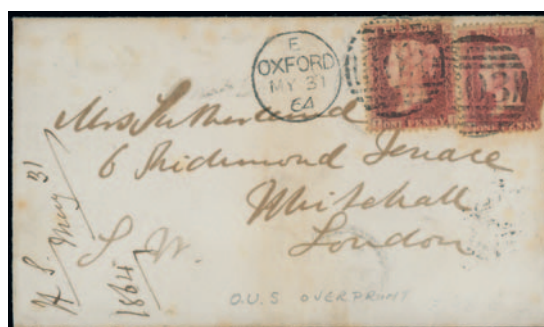 E
OXFORD
MY 31
64
Mrs Sutherland
6 Richmond Terrace
Whitehall
S. W.
London
H S. May 31
1864
O.U.S OVERPRINT
ONE PENNY